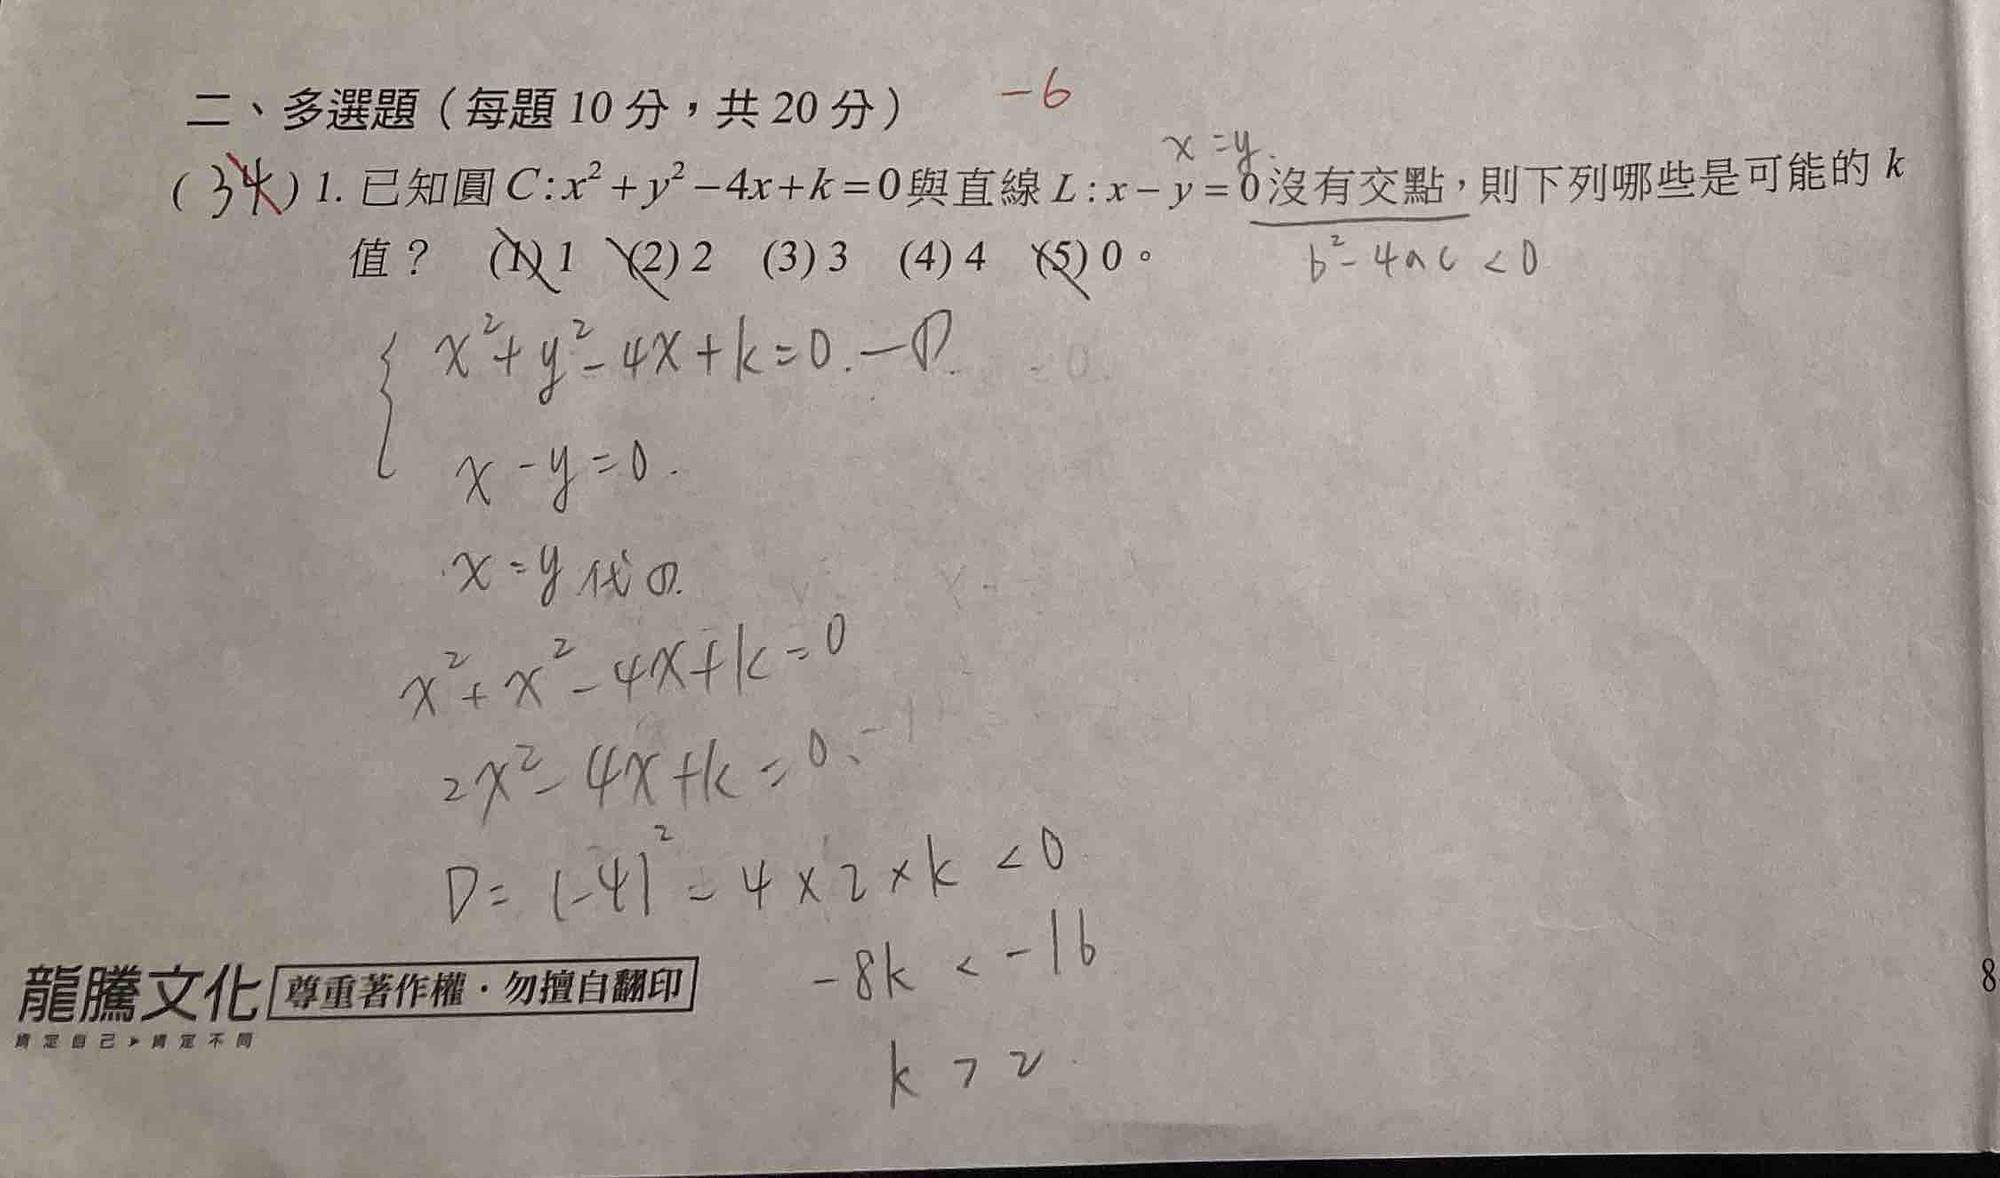 二、多選題（每題 10 分，共 20 分） -6
x=y.
(34) 1. 已知圓 C:x²+y²-4x+k=0與直線 L:x-y=0沒有交點，則下列哪些是可能的 k
值？ (1) 1 (2) 2 (3) 3 (4) 4 (5) 0。
b²-4ac<0
x²+y²-4x+k=0.-①.
x-y=0.
x=y代①.
x²+x²-4x+k=0
2x²-4x+k=0.
D=(-4)²-4×2×k<0
-8k<-16
k>2.
龍騰文化 尊重著作權·勿擅自翻印
肯定自己▸肯定不同
8